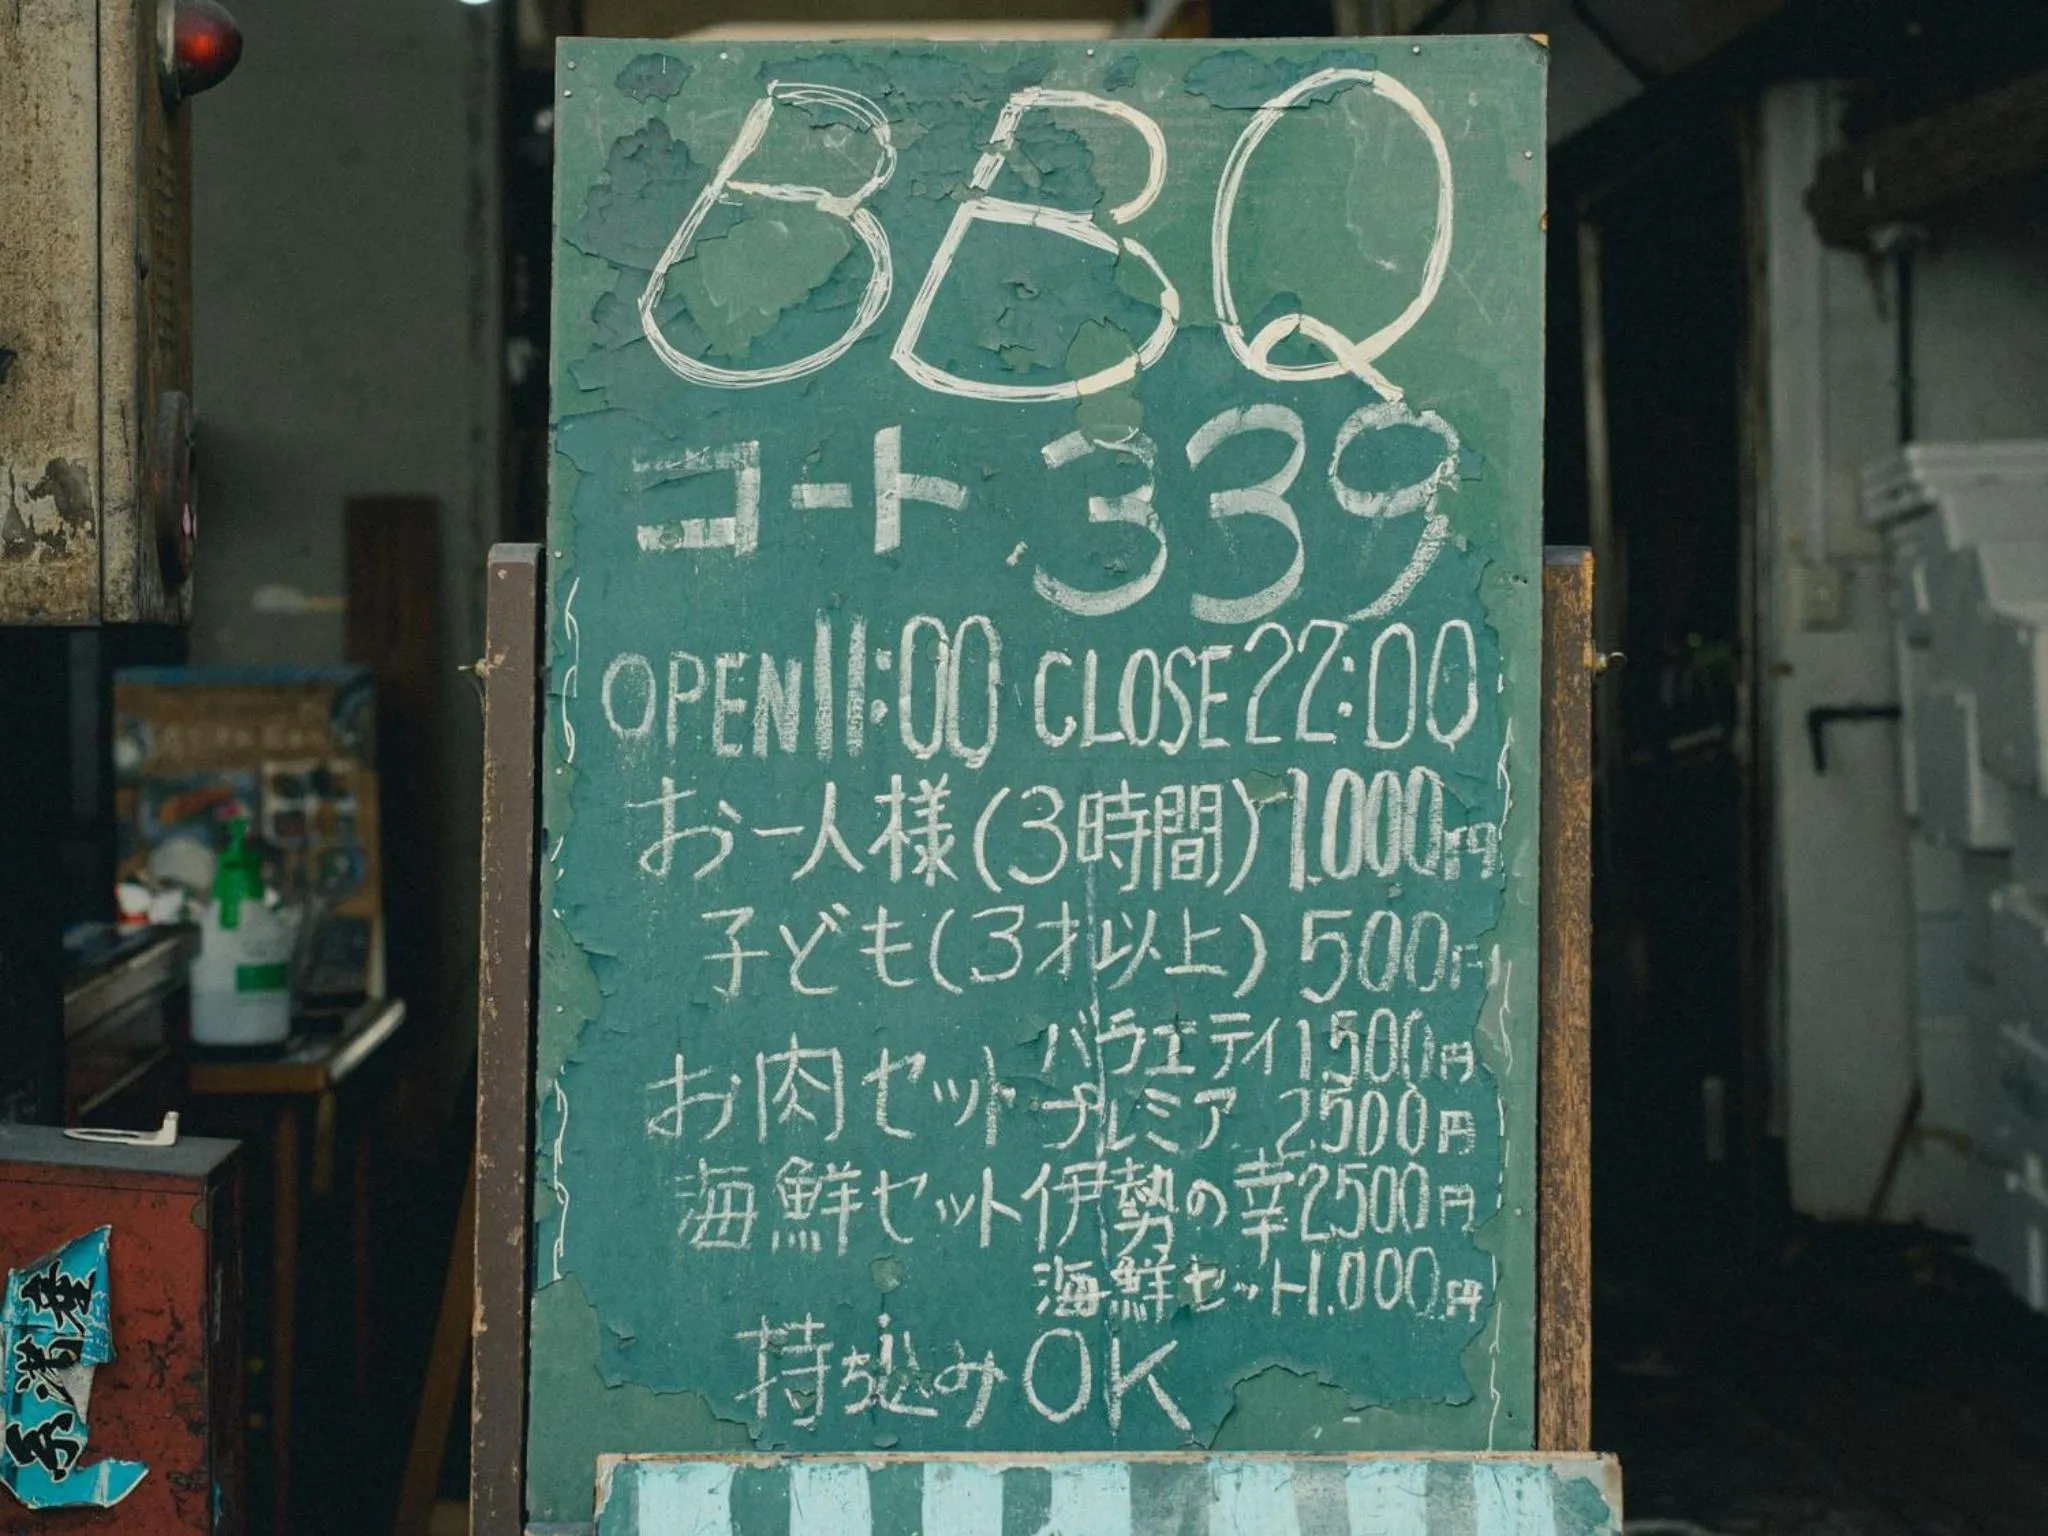 BBQ
コート339
OPEN 11:00 CLOSE 22:00
お一人様(3時間)1.000円
子ども(3才以上)500円
お肉セット バラエティ 1.500円
プレミア 2.500円
海鮮セット 伊勢の幸 2.500円
海鮮セット 1.000円
持ち込みOK